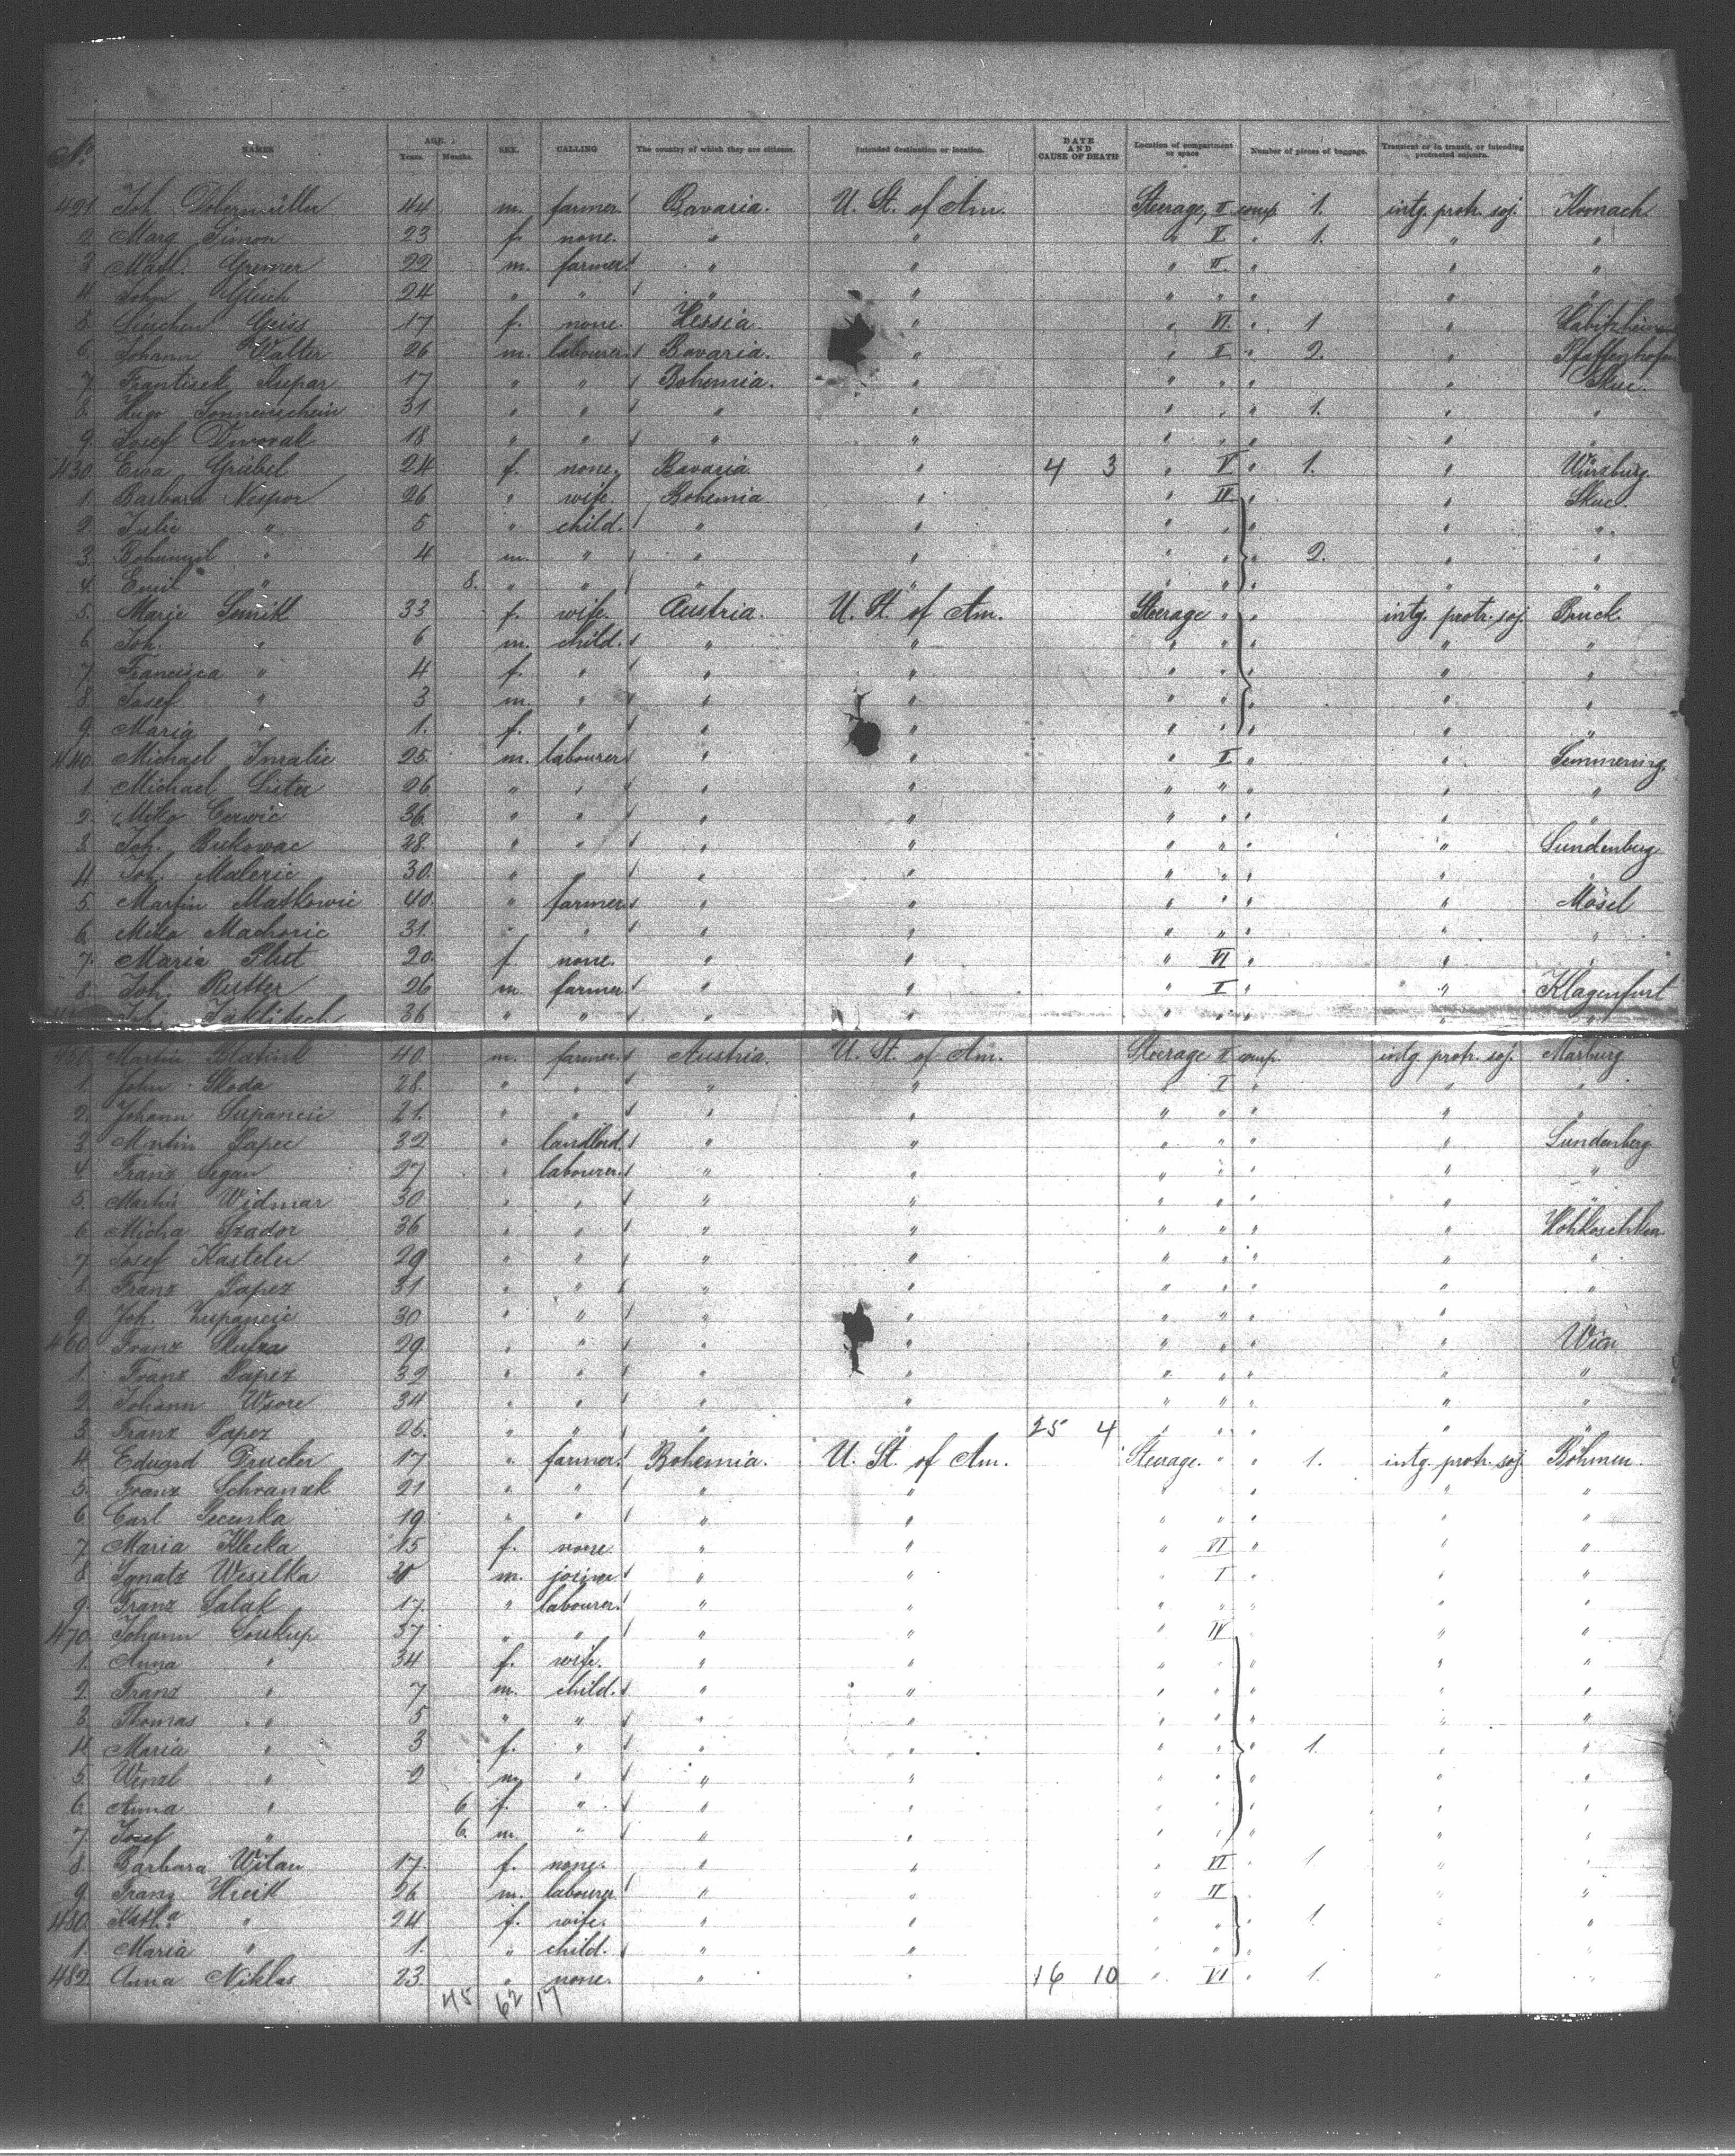 No. NAMES AGE. Years. Months. SEX. CALLING The country of which they are citizens. Intended destination or location. DATE AND CAUSE OF DEATH Location of compartment or space Number of pieces of baggage. Transient or in transit, or intending protracted sojourn.
421 Joh. Dobermüller 44 m. farmer Bavaria. U. St. of Am. Steerage, II comp. 1. intg. protr. soj. Kronach.
2. Marg. Simon 23 f. none. " " " V " 1. " "
3 Math. Gremer 22 m. farmer " " " II " " "
4 John Gleich 24 " " " " " " " " "
5. Geiss 17 f. none. Hessia. " " VI. " 1. "
6. Johann Walter 26 m. labourer Bavaria. " " I " 2. " Pfaffenhofen
7 Frantisek Kupar 17 " " Bohemia. " " " " " Skuc.
8. Hugo Sonnenschein 31 " " " " " " " 1. " "
9. Josef Dworak 18 " " " " " " " " "
430 Eva Griebel 24 f. none. Bavaria " 4 3 " V " 1. " Würzburg.
1. Barbara Nespor 26 " wife. Bohemia. " " IV " " Skuc.
2. Julie " 5 " child. " " " " " " "
3. Bohumil " 4 m. " " " " " " 2. " "
4. Emil " 8. " " " " " " " " "
5. Marie Semik 33 f. wife. Austria. U. St. of Am. Steerage " " intg. protr. soj. Bruck.
6. Joh. " 6 m. child. " " " " " " "
7 Francisca " 4 f. " " " " " " " "
8. Josef " 3 m. " " " " " " " "
9. Maria " 1. f. " " " " " " " "
440 Michael 25. m. labourer " " " I " " Semmering.
1. Michael 26 " " " " " " " " "
2. Miko Cerwic 36. " " " " " " " " "
3 Joh. Bukowac 28. " " " " " " " " Lundenburg
4 Joh. Maleric 30. " " " " " " " " "
5 Martin Matkowic 40. " farmer " " " " " " Mösel
6. Miko Machoric 31. " " " " " " " " "
7. Maria 20. f. none. " " " VI " " "
8. Joh. Rutter 26 m. farmer " " " I " " Klagenfurt
Joh. Jaklitsch 36 " " " "
450 Martin 40. m. farmer Austria. U. St. of Am. Steerage II comp. intg. protr. soj. Marburg
1. John Skoda 28. " " " " " I " " "
2. Johann Supancic 21. " " " " " " " " "
3. Martin Papec 32 " landlord " " " " " " Lundenberg
4. Franz Segan 27 " labourer " " " " " " "
5. Martin Widmar 30 " " " " " " " " "
6. Micha 36 " " " " " " " "
7. Josef Kasteler 29 " " " " " " " " "
8. Franz Papez 31 " " " " " " " " "
9. Joh. Zupancic 30 " " " " " " " "
460 Franz Skufza 29. " " " " " " " " Wien
1. Franz Papez 32 " " " " " " " " "
2. Johann 34 " " " " " " " " "
3. Franz Papez 25. " " " " 25 4 " " " " "
4. Eduard Drucker 17 " farmer Bohemia. U. St. of Am. Steerage. " " 1. intg. protr. soj. Böhmen.
5. Franz Schranek 21 " " " " " " " " "
6 Carl Pecenka 19. " " " " " " " " "
7 Maria Klecka 15 f. none " " " VI " " "
8 Ignatz Weselka 30 m. joiner " " " I " " "
9. Franz Salak 17. " labourer " " " " " " "
470. Johann Soukup 37 " " " " " IV " " "
1. Anna " 34 f. wife. " " " " " " "
2 Franz " 7 m. child. " " " " " " "
3. Thomas " 5 " " " " " " " " "
4 Maria " 3 f. " " " " " " 1. " "
5. Wenzl " 2 m. " " " " " " " "
6. Anna " 6 f. " " " " " " " "
7. Josef " 6. m. " " " " " " "
8. Barbara Witau 17. f. none. " " " VI " 1. " "
9. Franz 26 m. labourer " " " II " "
480. Kath.a " 24 f. wife. " " " " " 1. " "
1. Maria " 1. " child. " " " " " "
482. Anna Niklas 23. " none. " " 16 10 " VI " 1. " "
45 62 17